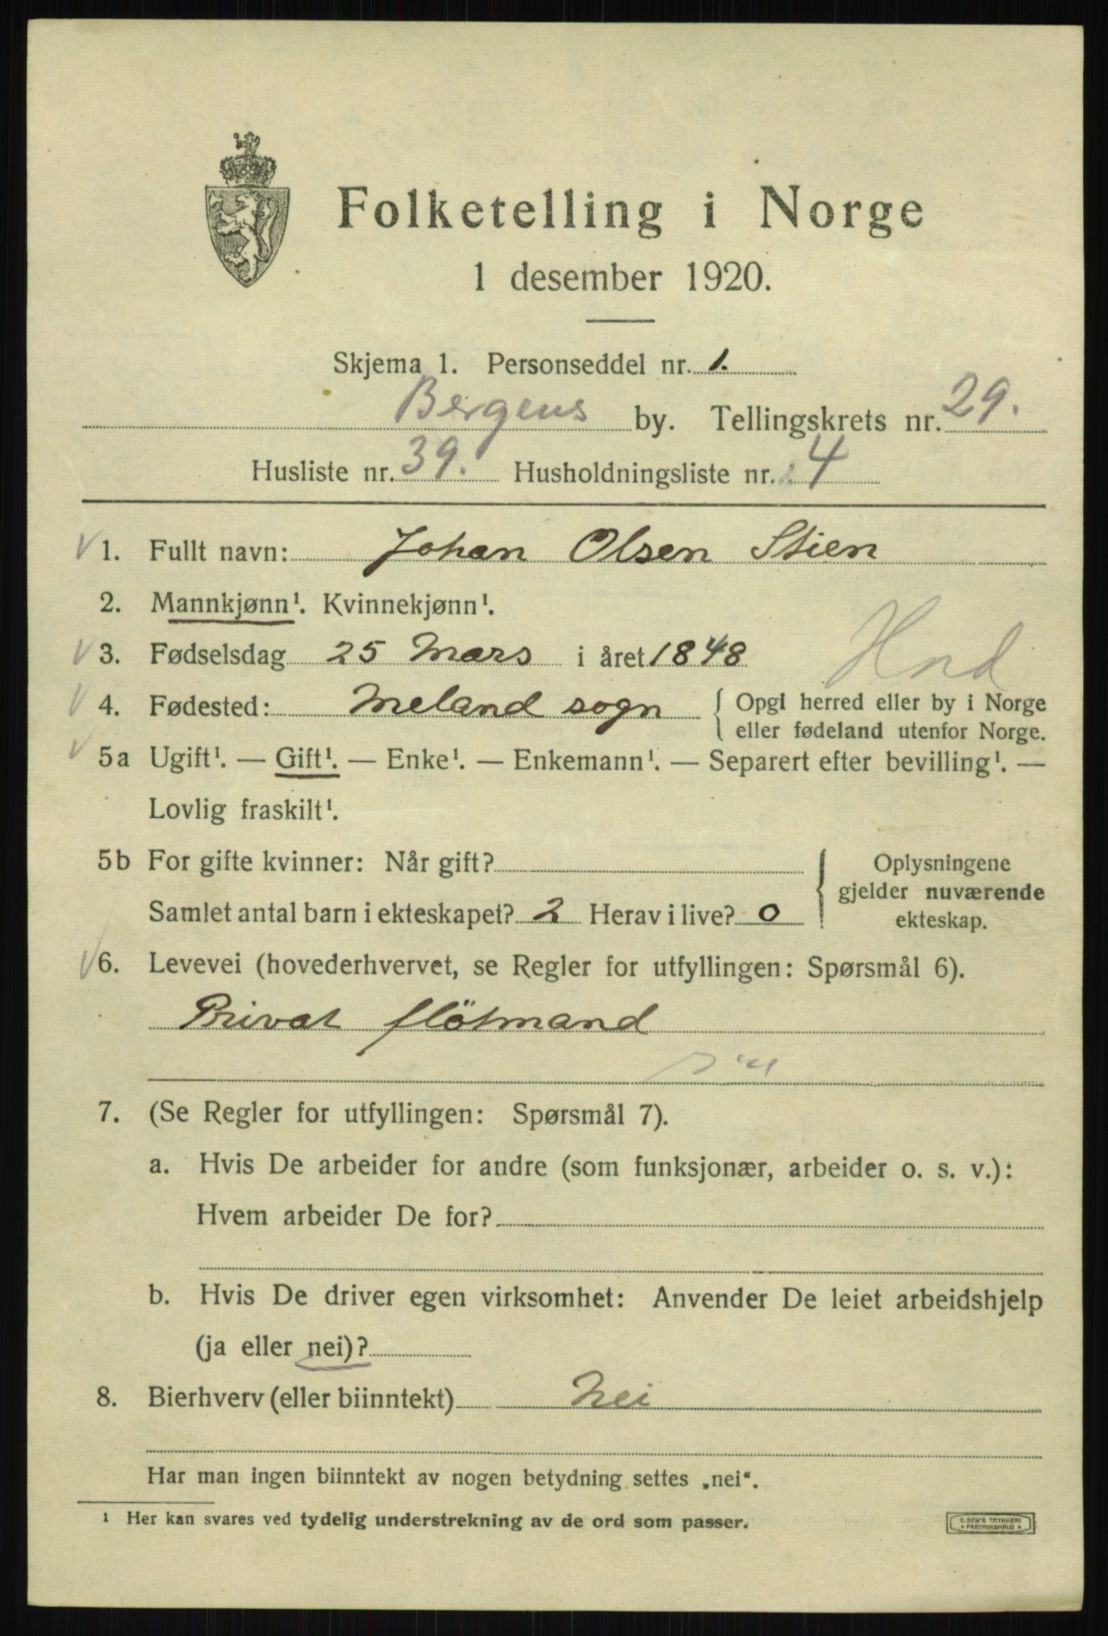 Folketelling i Norge
1 desember 1920.
Skjema 1. Personseddel nr. 1.
Bergens by. Tellingskrets nr. 29.
Husliste nr. 39. Husholdningsliste nr. 4
1. Fullt navn: Johan Olsen Stien
2. Mannkjønn¹. Kvinnekjønn¹.
3. Fødselsdag 25 Mars i året 1848
Hnd
4. Fødested: Meland sogn { Opgi herred eller by i Norge
eller fødeland utenfor Norge.
5a Ugift¹. — Gift¹. — Enke¹. — Enkemann¹. — Separert efter bevilling¹. —
Lovlig fraskilt¹.
5b For gifte kvinner: Når gift? { Oplysningene
gjelder nuværende
Samlet antal barn i ekteskapet? 2 Herav i live? 0 ekteskap.
6. Levevei (hovederhvervet, se Regler for utfyllingen: Spørsmål 6).
Privat flötmand
7. (Se Regler for utfyllingen: Spørsmål 7).
a. Hvis De arbeider for andre (som funksjonær, arbeider o. s. v.):
Hvem arbeider De for?
b. Hvis De driver egen virksomhet: Anvender De leiet arbeidshjelp
(ja eller nei)?
8. Bierhverv (eller biinntekt) Nei
Har man ingen biinntekt av nogen betydning settes „nei“.
¹ Her kan svares ved tydelig understrekning av de ord som passer.